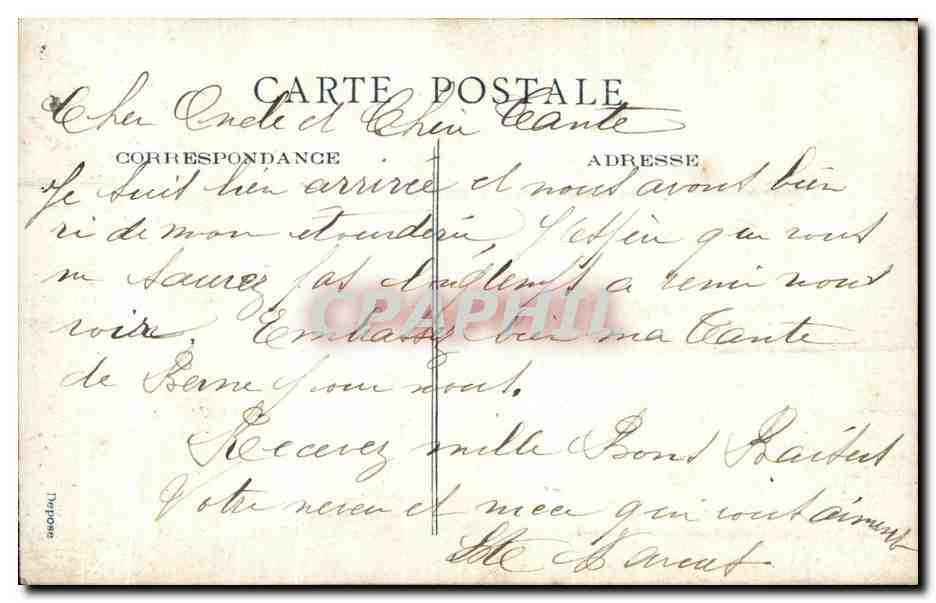 CARTE POSTALE
Cher Oncle et Chère Tante
CORRESPONDANCE ADRESSE
Je suit bien arrivée et nous avont bien
ri de mon étourderie, J'espère que vous
ne saurez pas longtemps a venir nous
voir. Embassez bien ma Tante
CPAPHIL
de Berne pour nout.
Recevez mille Bons Baisers
Votre neveu et niece qui vout aiment
Depose